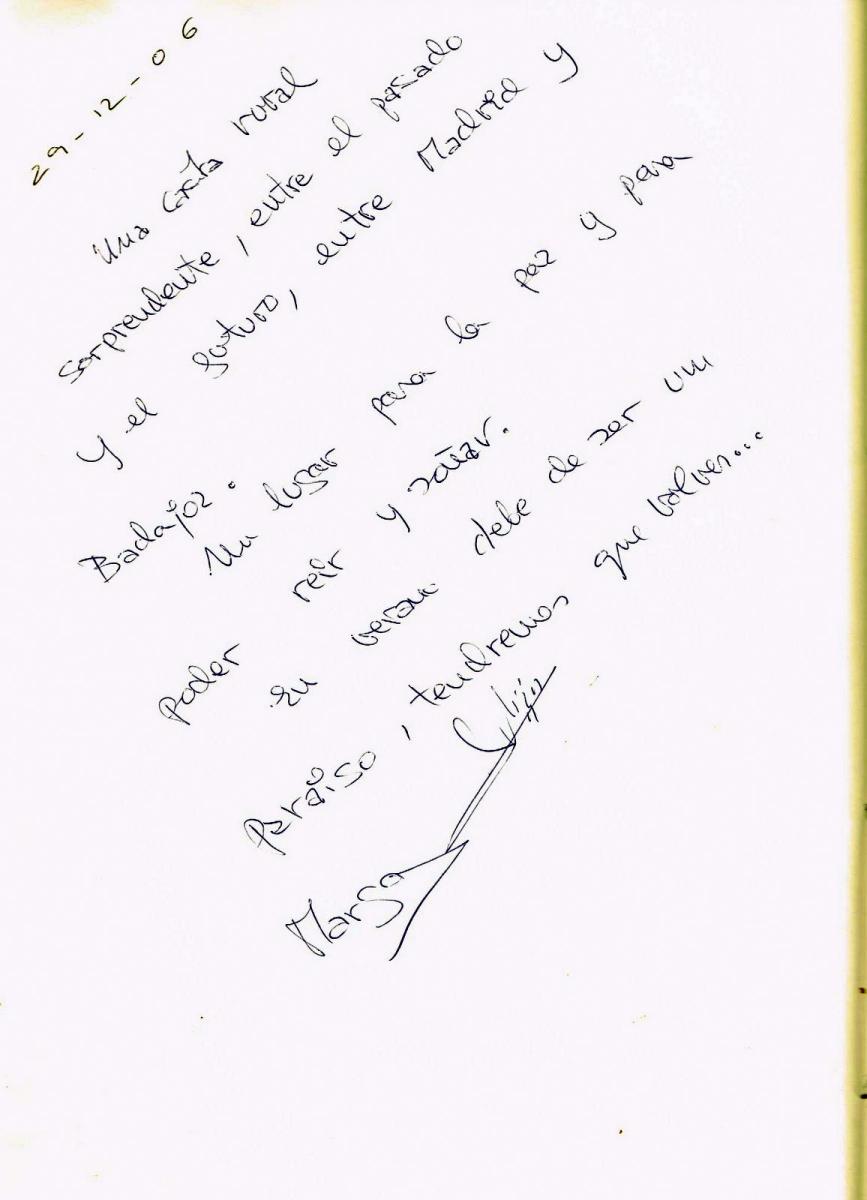 29-12-06
Una casita rural
sorprendente, entre el pasado
y el futuro, entre Madrid y
Badajoz.
Un lugar para la paz y para
poder reir y soñar.
En verano debe de ser un
paraíso, tendremos que volver...
Marga